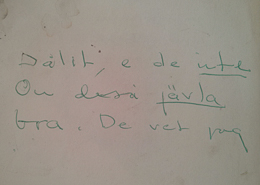 Dålit, e de inte
Du dessa jävla
bra. De vet jag